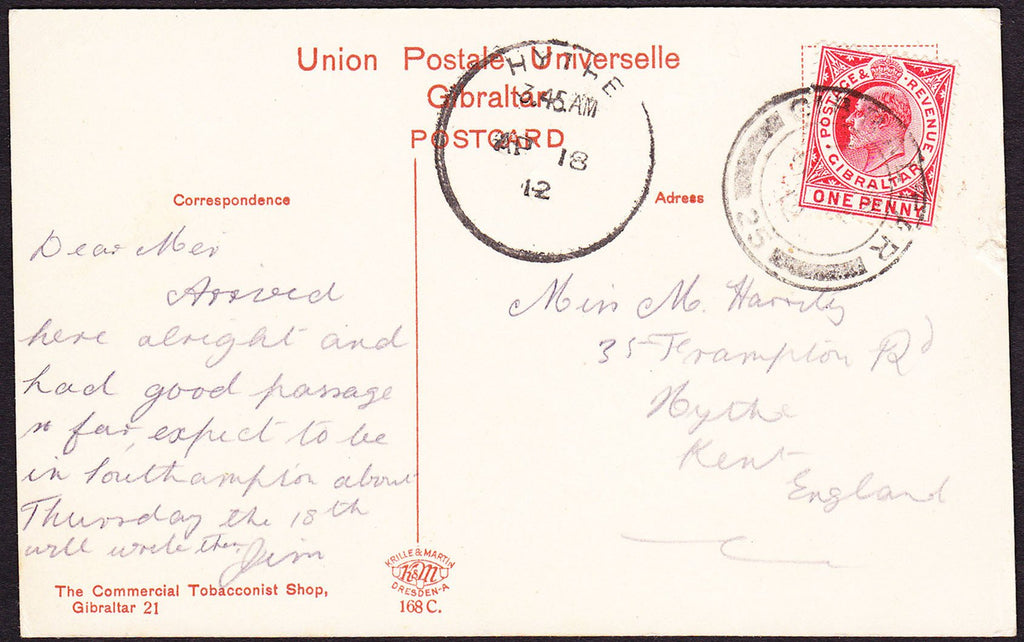 Union Postale Universelle
Gibraltar
POSTCARD
HYTHE
3.45 AM
AP 18
12
POSTAGE & REVENUE
GIBRALTAR
ONE PENNY
25
Correspondence
Adress
Dear Mei
Arrived
here alright and
had good passage
so far, expect to be
in Southampton about
Thursday the 18th
will write then Jim
Miss M.
35 Frampton Rd
Hythe
Kent
England
The Commercial Tobacconist Shop,
Gibraltar 21
KRILLE & MARTIN
K&M
DRESDEN-A
168 C.